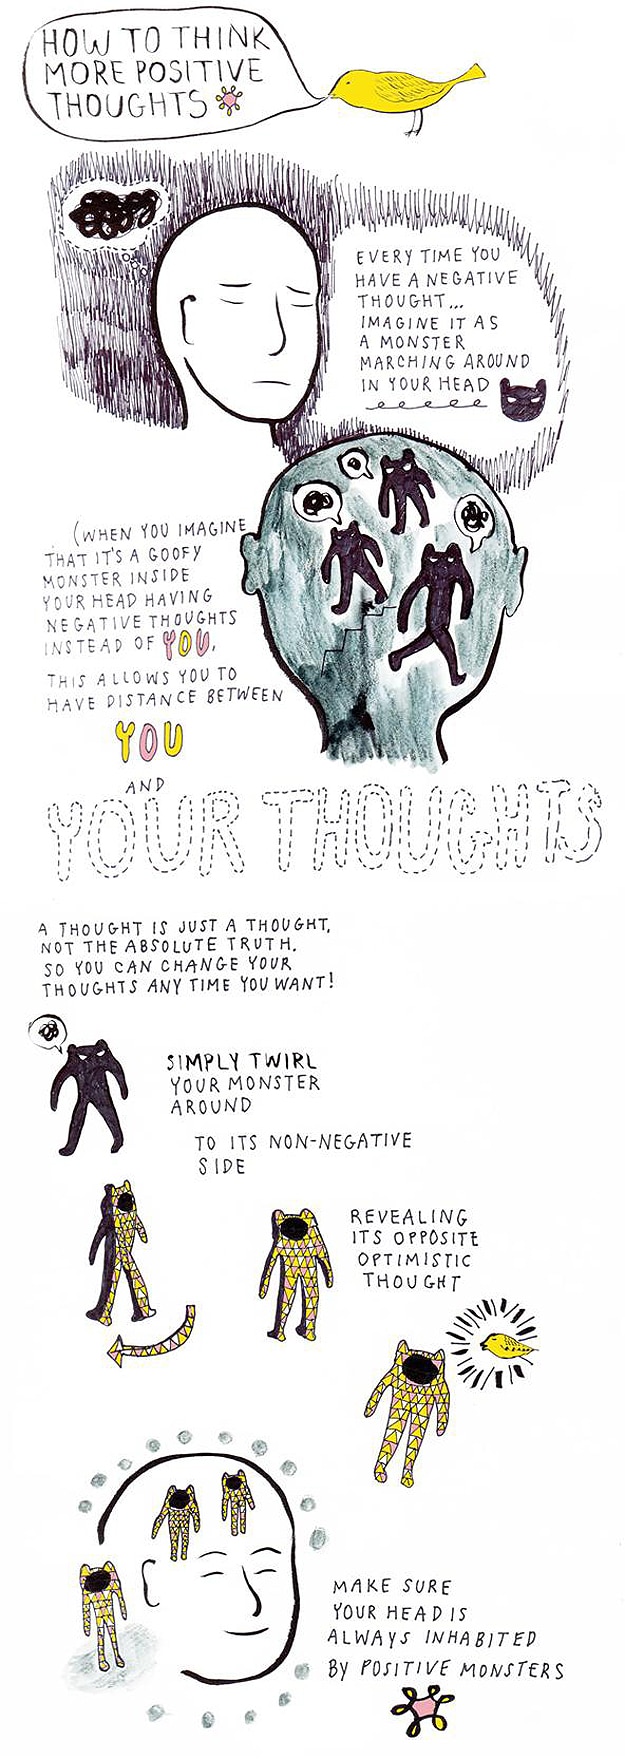 HOW TO THINK
MORE POSITIVE
THOUGHTS
EVERY TIME YOU
HAVE A NEGATIVE
THOUGHT...
IMAGINE IT AS
A MONSTER
MARCHING AROUND
IN YOUR HEAD
(WHEN YOU IMAGINE
THAT IT'S A GOOFY
MONSTER INSIDE
YOUR HEAD HAVING
NEGATIVE THOUGHTS
INSTEAD OF YOU,
THIS ALLOWS YOU TO
HAVE DISTANCE BETWEEN
YOU
AND
YOUR THOUGHTS
A THOUGHT IS JUST A THOUGHT,
NOT THE ABSOLUTE TRUTH.
SO YOU CAN CHANGE YOUR
THOUGHTS ANY TIME YOU WANT!
SIMPLY TWIRL
YOUR MONSTER
AROUND
TO ITS NON-NEGATIVE
SIDE
REVEALING
ITS OPPOSITE
OPTIMISTIC
THOUGHT
MAKE SURE
YOUR HEAD IS
ALWAYS INHABITED
BY POSITIVE MONSTERS